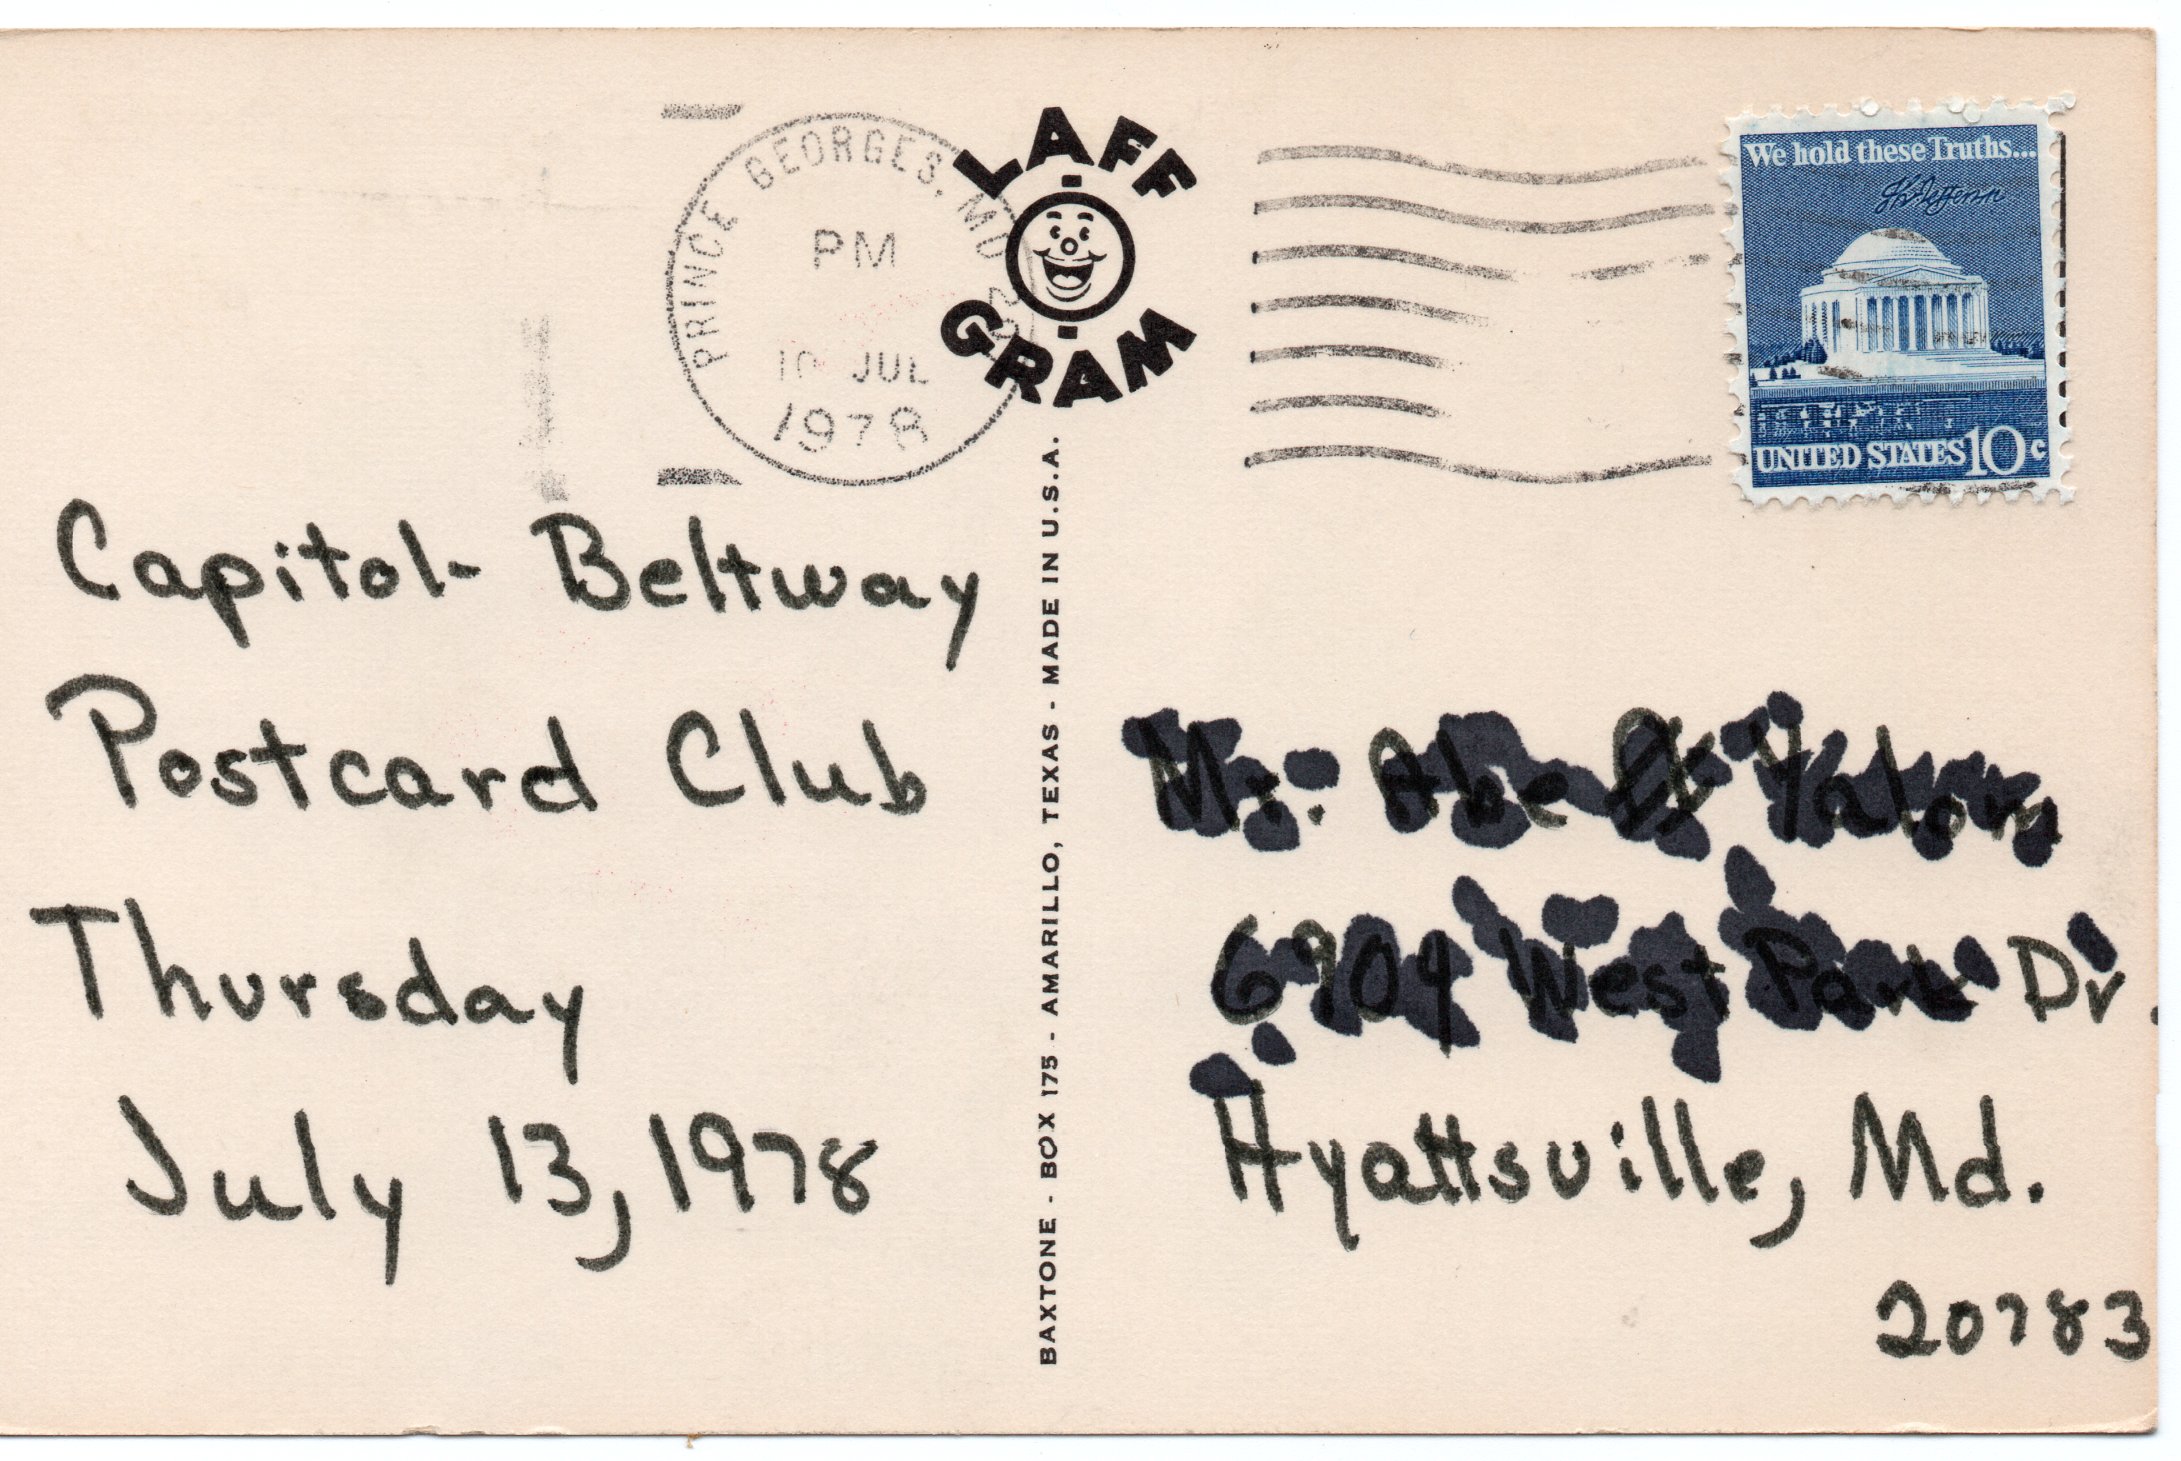 PRINCE GEORGES, MD
PM
10 JUL
1978
LAFF
GRAM
We hold these Truths...
Th Jefferson
UNITED STATES 10c
Capitol- Beltway
Postcard Club
Thursday
July 13, 1978
BAXTONE - BOX 175 - AMARILLO, TEXAS - MADE IN U.S.A.
Dr.
Hyattsville, Md.
20783